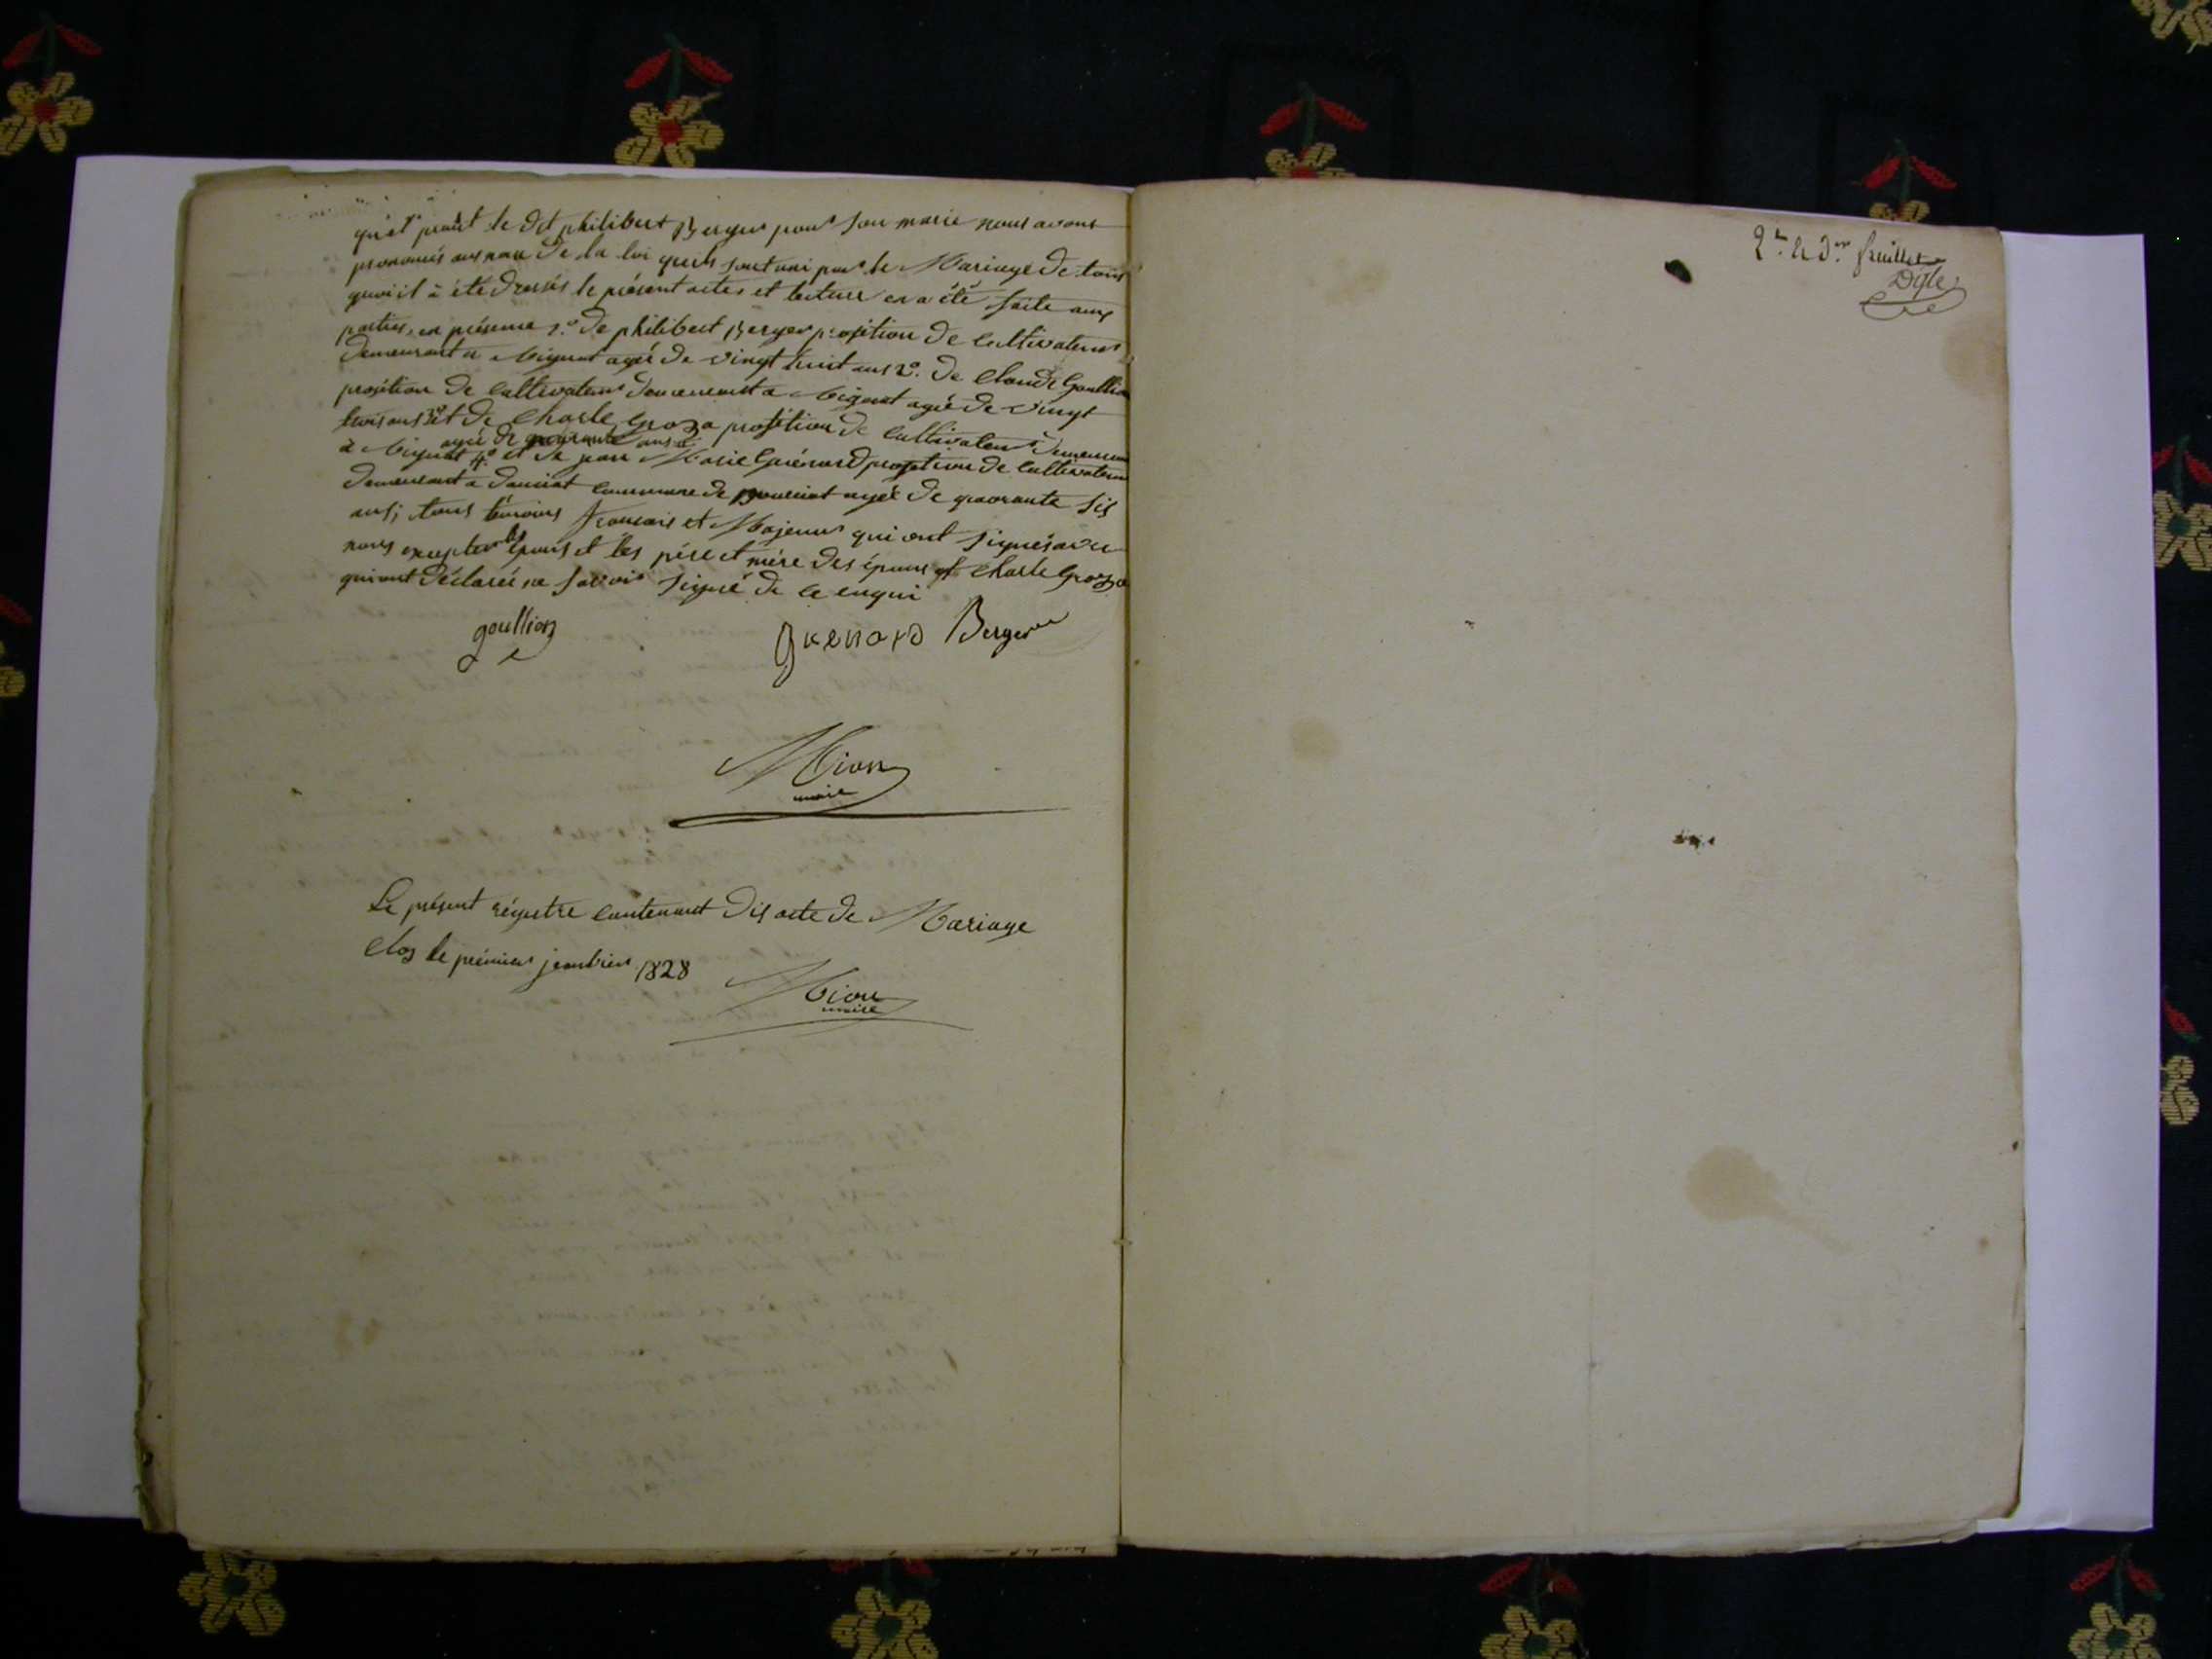 qu'el prent le dit philibert Berger pour son marie nous avons
prononcés aus nom De la loi quels sont uni par le Mariage De tous
quoi il à été Dressés le présent actes et lecture en a été faite aux
parties, en présence 1.° De philibert Berger profition De Cultivateur
Demeurant a Bignat ageé De vingt huit ans 2°. De Claude Goullion
profition De Cultivateur Demeurant a Bignat ageé De vingt
trois ans 3° et De Charle Groza profition De Cultivateur Demeurant
à Bignat ageé De quarante ans 4° et De jean Marie Guénard profition De Cultivateur
Demeurant a Commune De ageé De quarante sis
ans; tous témoins francais et Majeurs qui ont signés avec
nous excepter les époux et les père et mère Des époux et Charle Groza
qui ont Déclarés ne savoir signé De ce enqui
goullion
Guenard Berger
Mion
maire
Le présent régistre Contenant Dis acte De Mariage
Clos le prémier janvier 1828
Mion
maire
2.e & d.er feuillet